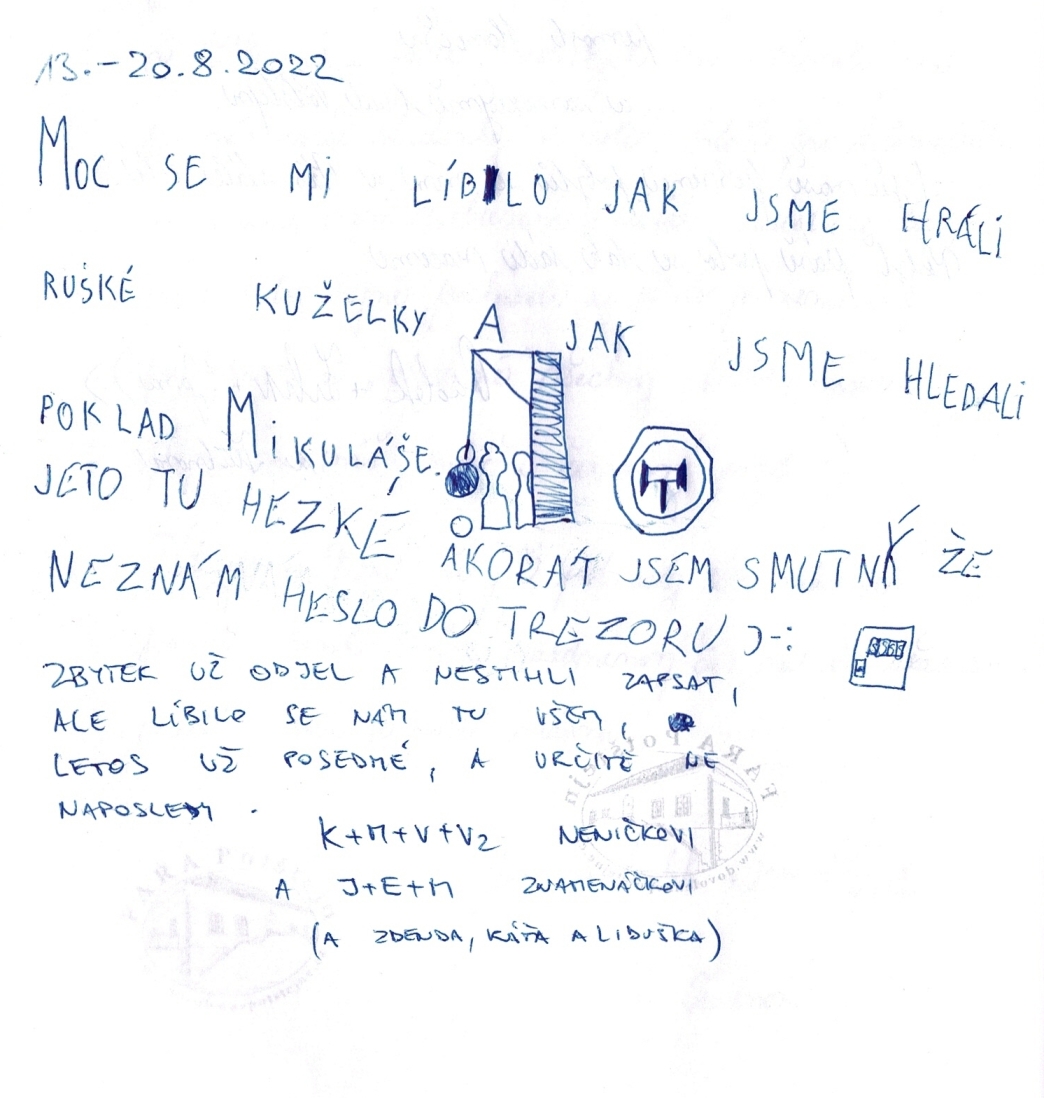 13.-20.8.2022
MOC SE MI LÍBILO JAK JSME HRÁLI
RUSKÉ KUŽELKY A JAK JSME HLEDALI
POKLAD MIKULÁŠE.
JETO TU HEZKÉ AKORÁT JSEM SMUTNÝ ŽE
NEZNÁM HESLO DO TREZORU )-:
ZBYTEK UŽ ODJEL A NESTIHLI ZAPSAT,
ALE LÍBILO SE NÁM TU VŠEM,
LETOS UŽ POSEDMÉ, A URČITĚ NE
NAPOSLEDY.
K+M+V+V2 NĚNIČKOVI
A J+E+M ZNAMENÁČKOVI
(A ZDENDA, KÁŤA A LIDUŠKA)